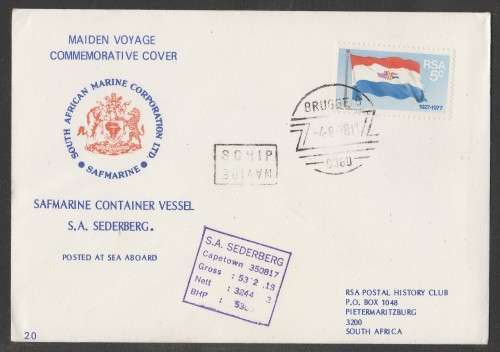 MAIDEN VOYAGE
COMMEMORATIVE COVER
SOUTH AFRICAN MARINE CORPORATION LTD.
• SAFMARINE •
SAFMARINE CONTAINER VESSEL
S.A. SEDERBERG.
POSTED AT SEA ABOARD
20
RSA
5c
1927-1977
BRUGGE
9380
SCHIP
NAVIRE
S.A. SEDERBERG
Capetown 350817
Gross :
Nett :
BHP :
RSA POSTAL HISTORY CLUB
P.O. BOX 1048
PIETERMARITZBURG
3200
SOUTH AFRICA